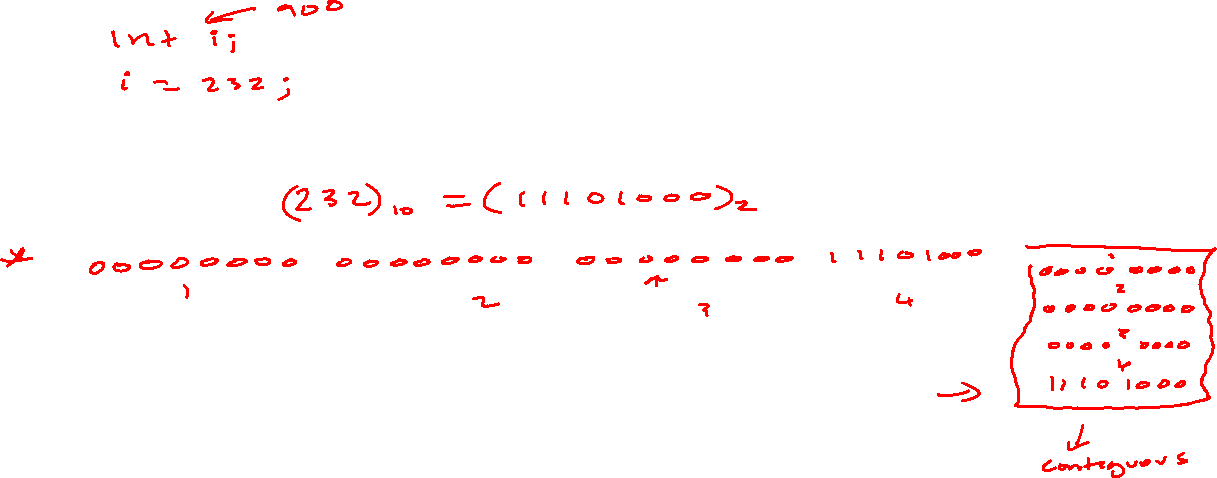 900
int i;
i = 232;
(232)10 = (11101000)2
* 00000000 00000000 00000000 11101000
1 2 3 4
1
0000 0000
2
0000 0000
3
0000 0000
4
1110 1000
contiguous